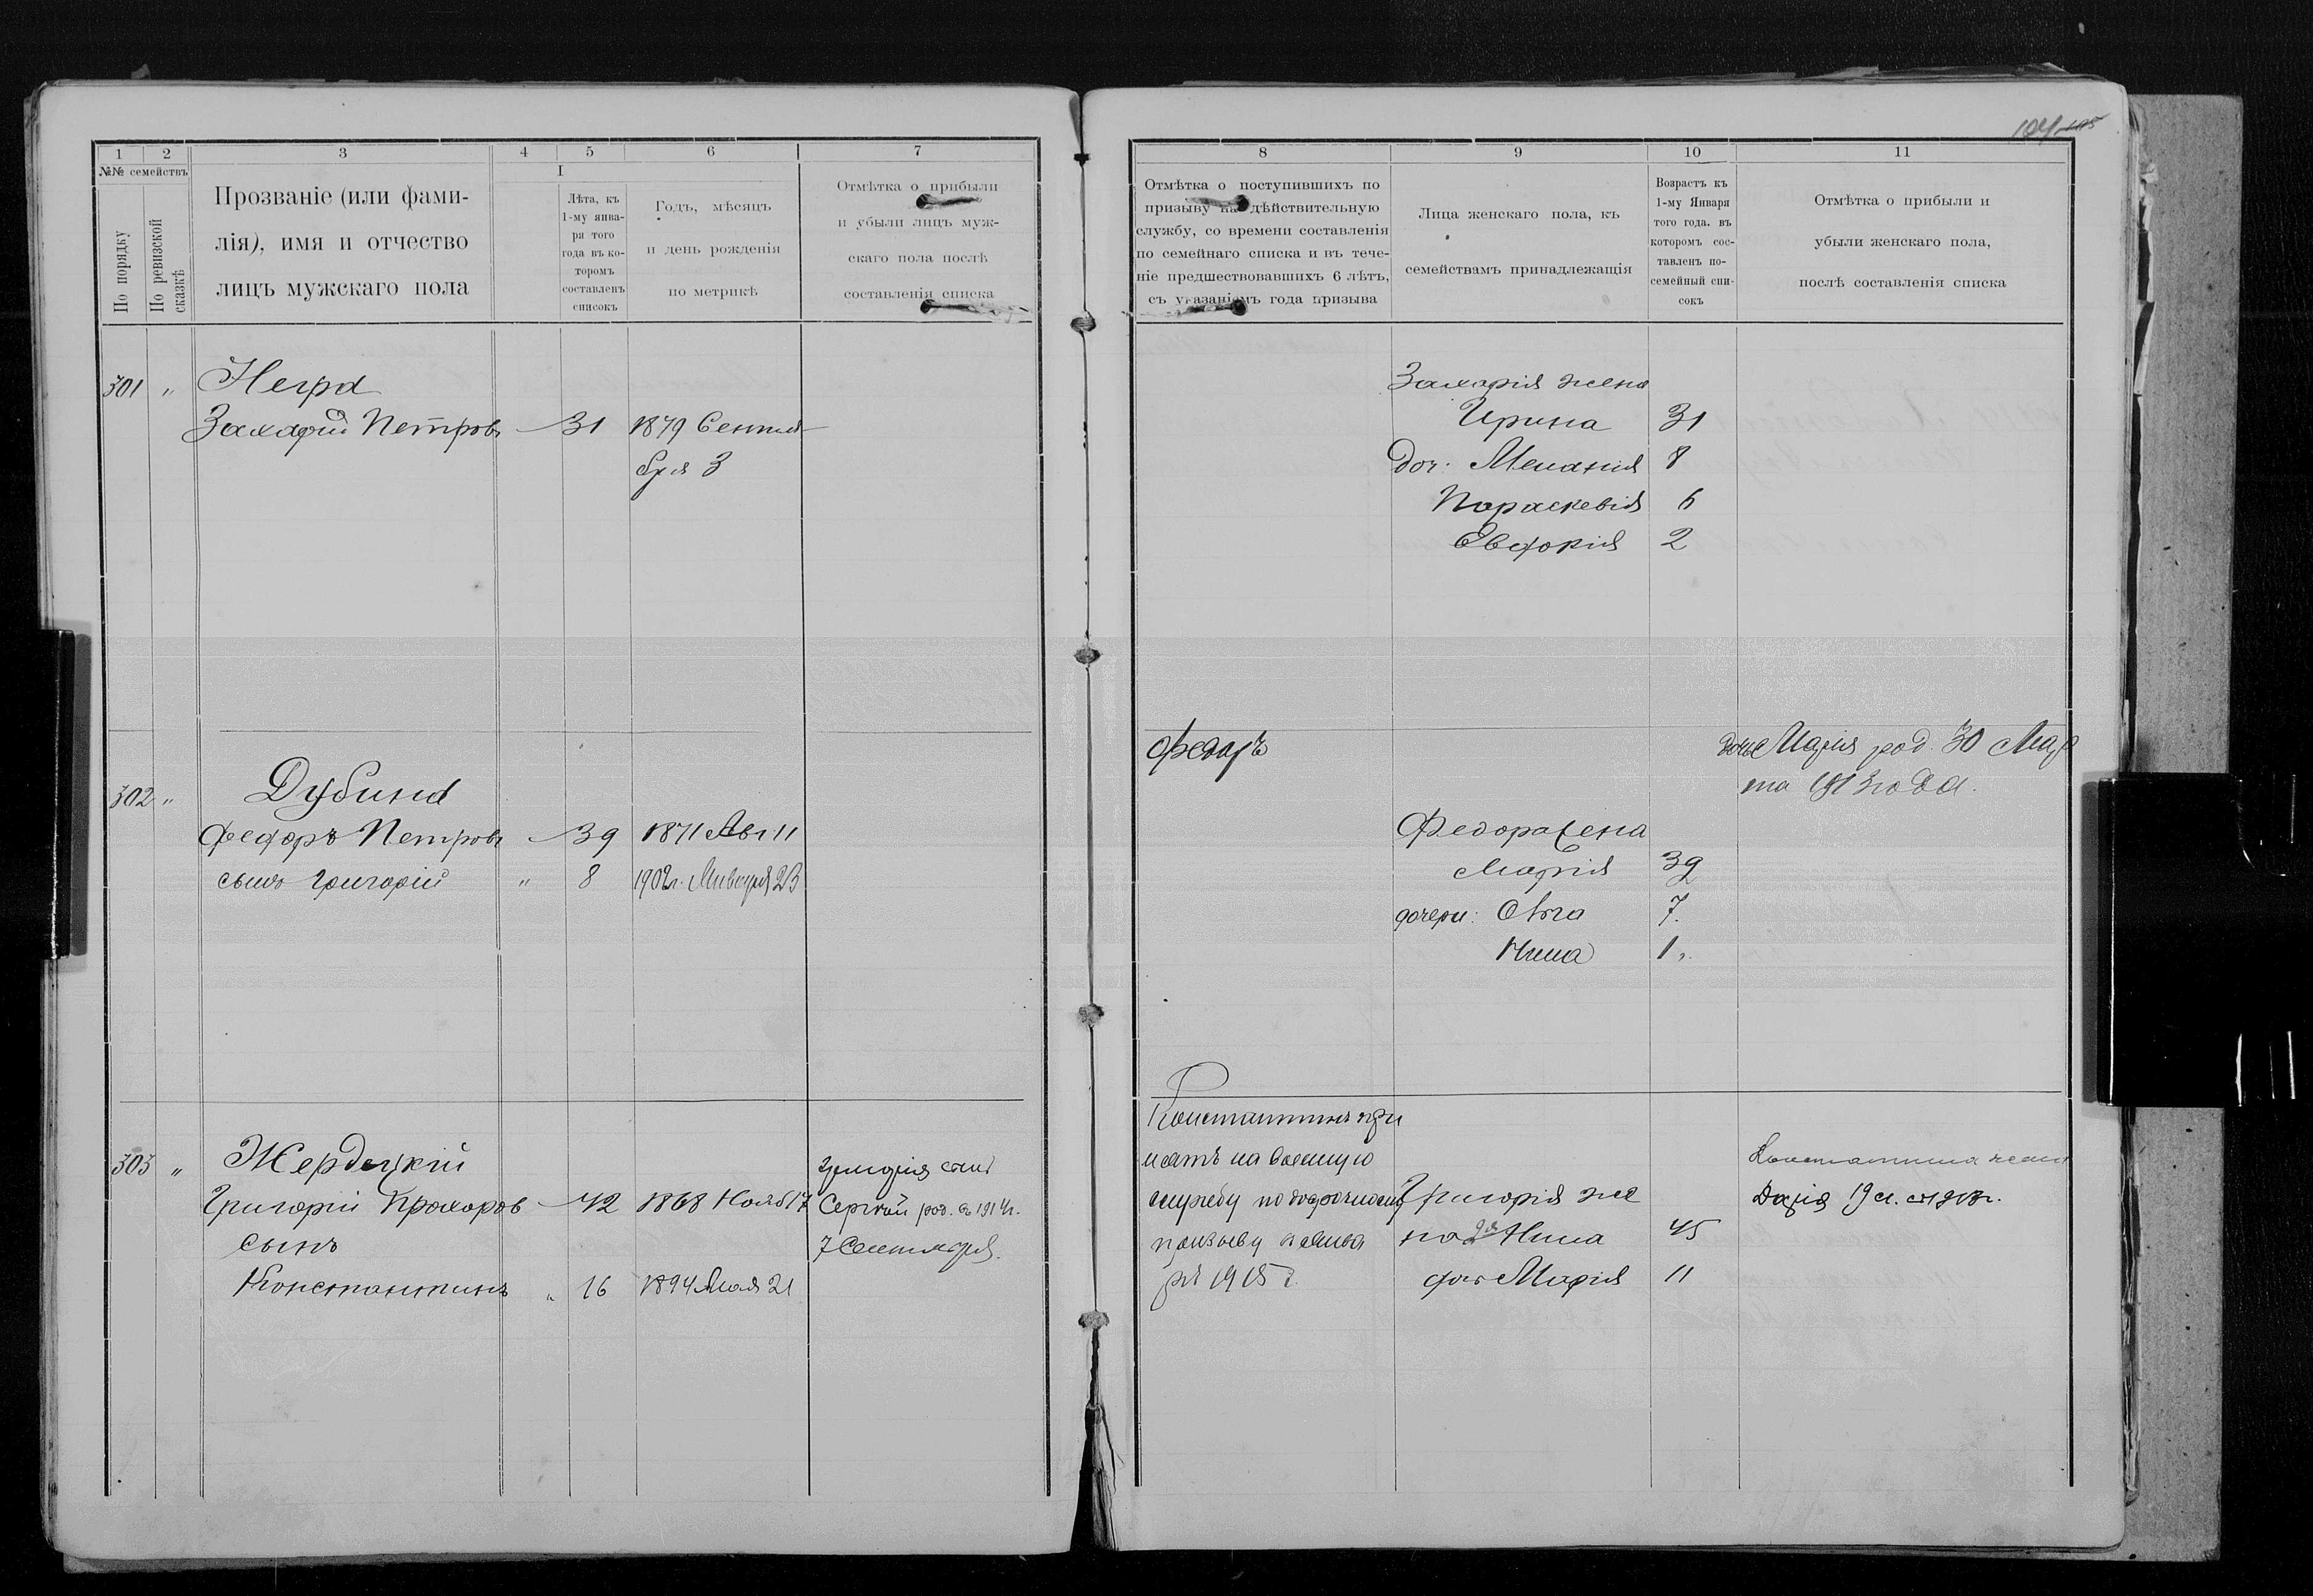 1 2 3 4 5 6 7
№№ семействъ
По порядку
По ревизской сказкѣ
Прозваніе (или фами-
лія), имя и отчество
лицъ мужскаго пола
I
Лѣта, къ
1-му янва-
ря того
года въ ко-
торомъ
составленъ
списокъ
Годъ, мѣсяцъ
и день рожденія
по метрикѣ
Отмѣтка о прибыли
и убыли лицъ муж-
скаго пола послѣ
составленія списка
301 " Негра
Захарій Петровъ 31 1879 Сентя-
бря 3
302 " Дубина
Федоръ Петровъ 39 1871 Авг 11
сынъ Григорій " 8 1902г. Января 23
303 " Жердецкій
Григорій Прохоров 42 1868 Нояб 17
сынъ
Константинъ " 16 1894 Мая 21
Григорія сынъ
Сергѣй род. въ 1914г.
7 Сентября.
104 105
8 9 10 11
Отмѣтка о поступившихъ по
призыву на дѣйствительную
службу, со времени составленія
по семейнаго списка и въ тече-
ніе предшествовавшихъ 6 лѣтъ,
съ указаніемъ года призыва
Лица женскаго пола, къ
семействамъ принадлежащія
Возрастъ къ
1-му Января
того года. въ
которомъ сос-
тавленъ по-
семейный спи-
сокъ
Отмѣтка о прибыли и
убыли женскаго пола,
послѣ составленія списка
Захарія жена
Ирина 31
доч: Меланія 8
Параскевія 6
Евдокія 2
Федоръ
дочь Марія род. 30 Мар
та 1913 года.
Федора жена
Марія 39
дочери: Ольга 7.
Нина 1.
Константинъ при
нятъ на военную
службу по досрочному
призыву въ Янва
рѣ 1915 г.
Григорія же
на 2я Нина 45
доч Марія 11
Константина жена
Дарія 19 л.